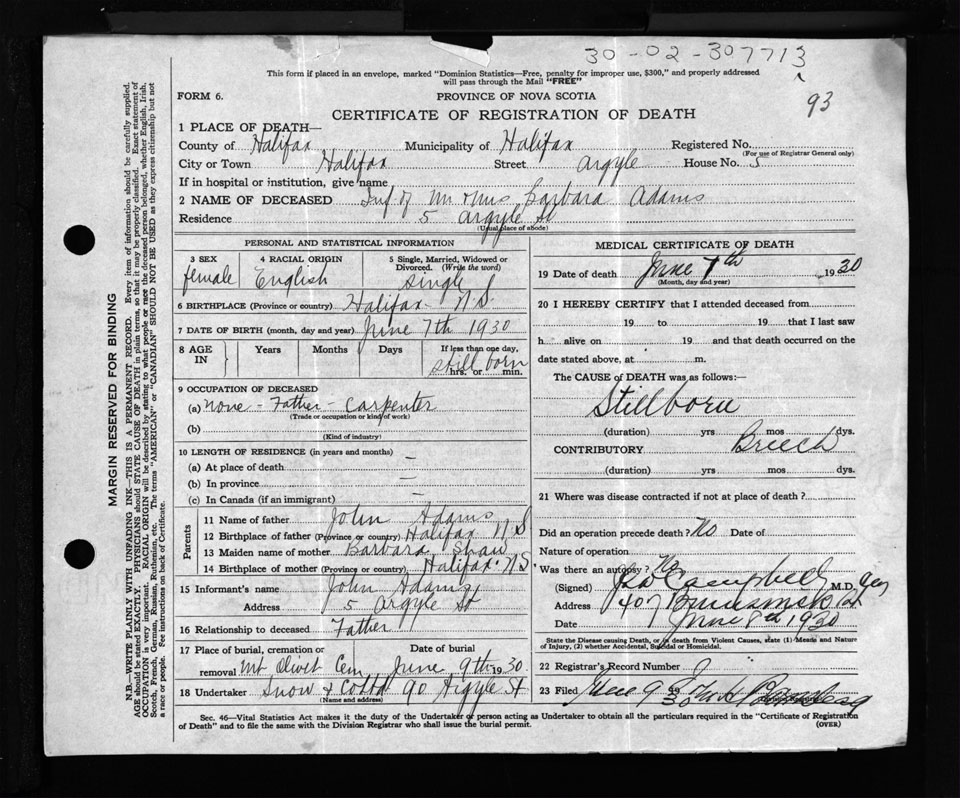 30-02-307713
This form if placed in an envelope, marked "Dominion Statistics—Free, penalty for improper use, $300," and properly addressed
will pass through the Mail "FREE"
FORM 6.
PROVINCE OF NOVA SCOTIA
93
CERTIFICATE OF REGISTRATION OF DEATH
1 PLACE OF DEATH—
County of Halifax Municipality of Halifax Registered No.
(For use of Registrar General only)
City or Town Halifax Street Argyle House No. 5
If in hospital or institution, give name
2 NAME OF DECEASED Inf of Mr & Mrs Barbara Adams
Residence 5 Argyle St
(Usual place of abode)
PERSONAL AND STATISTICAL INFORMATION
3 SEX 4 RACIAL ORIGIN 5 Single, Married, Widowed or
Divorced. (Write the word)
female English Single
6 BIRTHPLACE (Province or country) Halifax N.S.
7 DATE OF BIRTH (month, day and year) June 7th 1930
8 AGE IN Years Months Days If less than one day,
still born
hrs. or min.
9 OCCUPATION OF DECEASED
(a) none - Father - Carpenter
(Trade or occupation or kind of work)
(b)
(Kind of industry)
10 LENGTH OF RESIDENCE (in years and months)
(a) At place of death —
(b) In province —
(c) In Canada (if an immigrant) —
Parents
11 Name of father John Adams
12 Birthplace of father (Province or country) Halifax N S
13 Maiden name of mother Barbara Shaw
14 Birthplace of mother (Province or country) Halifax N S
15 Informant's name John Adams
Address 5 Argyle St
16 Relationship to deceased Father
17 Place of burial, cremation or Date of burial
removal Mt Olivet Cem June 9th 1930
18 Undertaker Snow & 90 Argyle St
(Name and address)
MEDICAL CERTIFICATE OF DEATH
19 Date of death June 7th 1930
(Month, day and year)
20 I HEREBY CERTIFY that I attended deceased from
19 to 19 that I last saw
h alive on 19 and that death occurred on the
date stated above, at m.
The CAUSE of DEATH was as follows:—
Stillborn
(duration) yrs mos dys.
CONTRIBUTORY Breech
(duration) yrs mos dys.
21 Where was disease contracted if not at place of death?
Did an operation precede death? No Date of
Nature of operation
Was there an autopsy? No
(Signed) Campbell M.D.
Address 407 Brunswick St
Date June 8th 1930
State the Disease causing Death, or in death from Violent Causes, state (1) Means and Nature
of Injury, (2) whether Accidental, Suicidal or Homicidal.
22 Registrar's Record Number
23 Filed June 9 1930
Sec. 46—Vital Statistics Act makes it the duty of the Undertaker or person acting as Undertaker to obtain all the particulars required in the "Certificate of Registration
of Death" and to file the same with the Division Registrar who shall issue the burial permit.
(OVER)
MARGIN RESERVED FOR BINDING
N.B.—WRITE PLAINLY WITH UNFADING INK—THIS IS A PERMANENT RECORD. Every item of information should be carefully supplied.
AGE should be stated EXACTLY. PHYSICIANS should STATE CAUSE OF DEATH in plain terms, so that it may be properly classified. Exact statement of
OCCUPATION is very important. RACIAL ORIGIN will be described by stating to what people or race the deceased person belonged, whether English, Irish,
Scotch, French, German, Russian, Ruthenian, etc. The terms "AMERICAN" or "CANADIAN" SHOULD NOT BE USED as they express citizenship but not
a race or people. See instructions on back of Certificate.